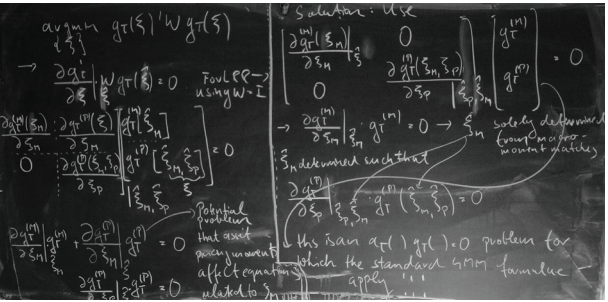 argmin g_T(ξ)'W g_T(ξ)
{ξ}
→ ∂g_T'/∂ξ |_ξ̂ W g_T(ξ̂) = 0
For LPP →
using W = I
[ ∂g_T^(M)(ξ_M)/∂ξ_M ⋮ ∂g_T^(P)/∂ξ_M ; 0 ∂g_T^(P)(ξ_M, ξ_P)/∂ξ_P ] | ξ̂_M, ξ̂_P [ g_T^(M)[ξ̂_M] ; g_T^(P)[ξ̂_M, ξ̂_P] ] = 0
∂g_T^(M)/∂ξ_M | ξ̂_M g_T^(M) + ∂g_T^(P)/∂ξ_M | g_T^(P) = 0
∂g_T^(P)/∂ξ_P | g_T^(P) = 0
Potential
problem
that asset
pricing moments
affect equation
related to ξ_M
Solution: Use
[ ∂g_T^(M)(ξ_M)/∂ξ_M | ξ̂_M 0 ; 0 ∂g_T^(P)(ξ_M, ξ_P)/∂ξ_P | ξ̂_M, ξ̂_P ] [ g_T^(M) ; g_T^(P) ] = 0
→ ∂g_T^(M)/∂ξ_M | ξ̂_M · g_T^(M) = 0 → ξ̂_M solely determined
from macro-
moment matches
ξ̂_P determined such that
∂g_T^(P)/∂ξ_P | ξ̂_P, ξ̂_M · g_T^(P)(ξ̂_M, ξ̂_P) = 0
this is an a_T( ) g_T( ) = 0 problem for
which the standard GMM formulae
apply